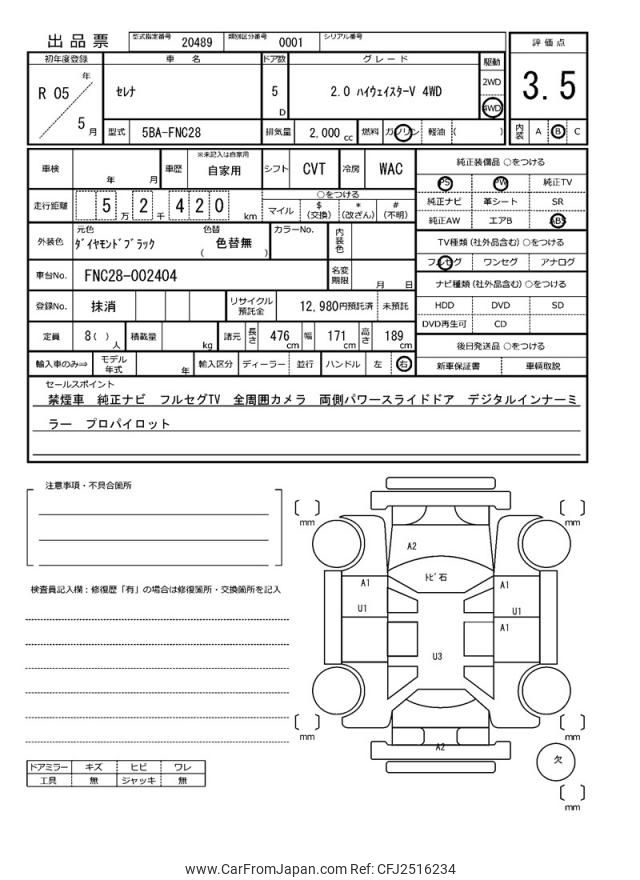 出品票 型式指定番号 20489 類別区分番号 0001 シリアル番号
評価点
3.5
内装 A B C
初年度登録 車名 ドア数 グレード 駆動
R 05 年 5 月
セレナ 5 D 2.0 ハイウェイスターV 4WD
2WD
4WD
型式 5BA-FNC28 排気量 2,000 cc 燃料 ガソリン 軽油 ( )
車検 年 月 車歴 ※未記入は自家用 自家用 シフト CVT 冷房 WAC
走行距離 5 万 2 千 4 2 0 km
○をつける
マイル $(交換) *(改ざん) #(不明)
外装色 元色 ダイヤモンドブラック 色替 ( 色替無 ) カラーNo. 内装色
車台No. FNC28-002404 名変期限 月 日
登録No. 抹消 リサイクル預託金 12,980円預託済 未預託
定員 8( ) 人 積載量 kg 諸元 長さ 476 cm 幅 171 cm 高さ 189 cm
輸入車のみ⇒ モデル年式 年 輸入区分 ディーラー 並行 ハンドル 左 右
純正装備品 ○をつける
PS PW 純正TV
純正ナビ 革シート SR
純正AW エアB ABS
TV種類 (社外品含む) ○をつける
フルセグ ワンセグ アナログ
ナビ種類 (社外品含む) ○をつける
HDD DVD SD
DVD再生可 CD
後日発送品 ○をつける
新車保証書 車輌取説
セールスポイント
禁煙車 純正ナビ フルセグTV 全周囲カメラ 両側パワースライドドア デジタルインナーミ
ラー プロパイロット
注意事項・不具合箇所
検査員記入欄：修復歴「有」の場合は修復箇所・交換箇所を記入
ドアミラー キズ ヒビ ワレ
工具 無 ジャッキ 無
[ ] mm
[ ] mm
A2
トビ石
A1
U1
A1
U1
A1
U3
[ ] mm
[ ] mm
A2
欠
[ ] mm
www.CarFromJapan.com Ref: CFJ2516234